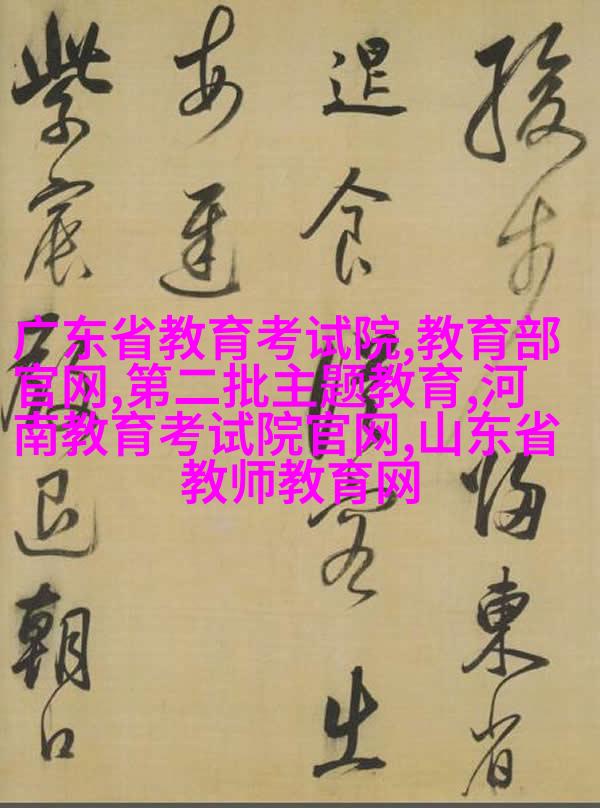 緩步歸東省
退食從容出
每遲
紫宸殿退朝口
广东省教育考试院,教育部
官网,第二批主题教育,河
南教育考试院官网,山东省
教师教育网